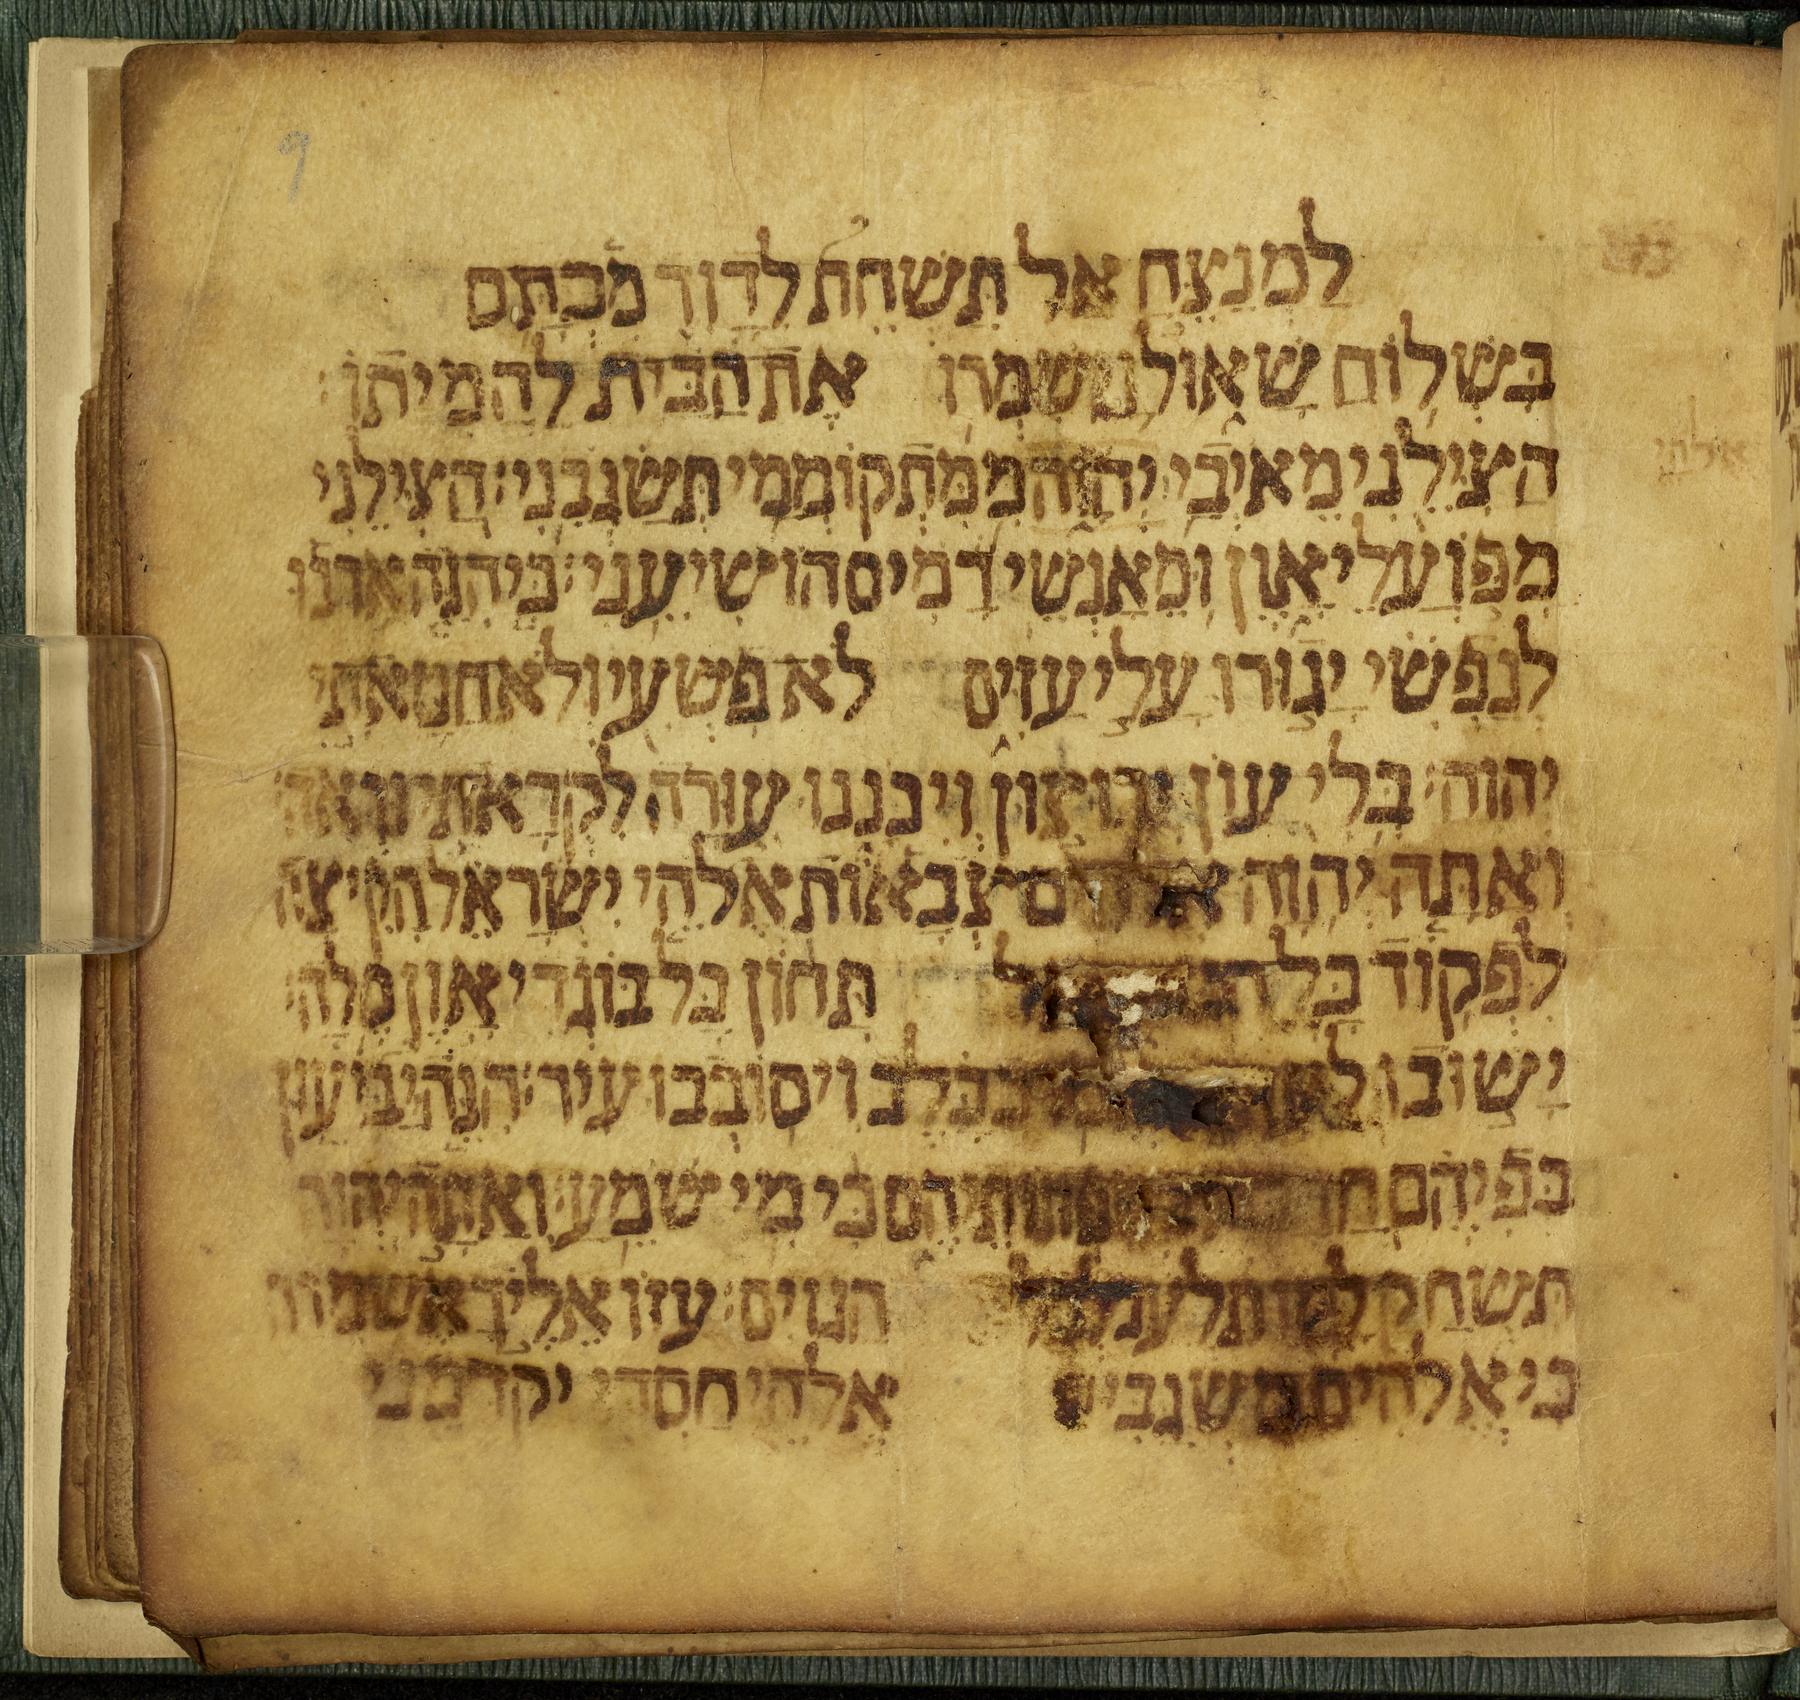 לַמְנַצֵּחַ אַל תַּשְׁחֵת לְדָוִד מִכְתָּם
בִּשְׁלוֹחַ שָׁאוּל וַיִּשְׁמְרוּ אֶת הַבַּיִת לַהֲמִיתוֹ׃
הַצִּילֵנִי מֵאֹיְבַי יְהוָה מִמִּתְקוֹמְמַי תְּשַׂגְּבֵנִי׃ הַצִּילֵנִי
מִפּוֹעֲלֵי אָוֶן וּמֵאַנְשֵׁי דָמִים הוֹשִׁיעֵנִי׃ כִּי הִנֵּה אָרְבוּ
לְנַפְשִׁי יָגוּרוּ עָלַי עַזִים לֹא פִשְׁעִי וְלֹא חַטָּאתִי
יהוה׃ בְּלִי עוֹן יְרוּצוּן וְיִכֹּנָנוּ עוּרָה לִקְרָאתִי וּרְאֵה׃
וְאַתָּה יְהוָה צְבָאוֹת אֱלֹהֵי יִשְׂרָאֵל הָקִיצָה
לִפְקוֹד כָּל תָּחוֹן כָּל בּוֹגְדֵי אָוֶן סֶלָה׃
יָשׁוּבוּ כַכֶּלֶב וִיסוֹבְבוּ עִיר׃ הִנֵּה יַבִּיעוּן
בְּפִיהֶם בְּשִׂפְתוֹתֵיהֶם כִּי מִי שֹׁמֵעַ׃ וְאַתָּה יְהוָה
תִּשְׂחַק לָמוֹ תִּלְעַג לְכָל הגוים׃ עֻזּוֹ אֵלֶיךָ אֶשְׁמֹרָה
כִּי אֱלֹהִים מִשְׂגַּבִּי׃ אֱלֹהֵי חַסְדִּי יְקַדְּמֵנִי